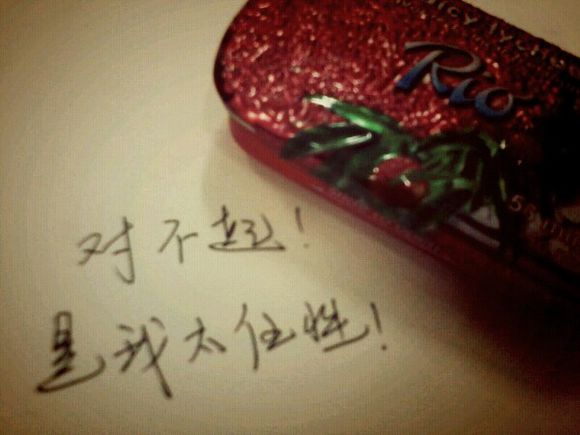 juicy lychee
Rio
对不起！
是我太任性！